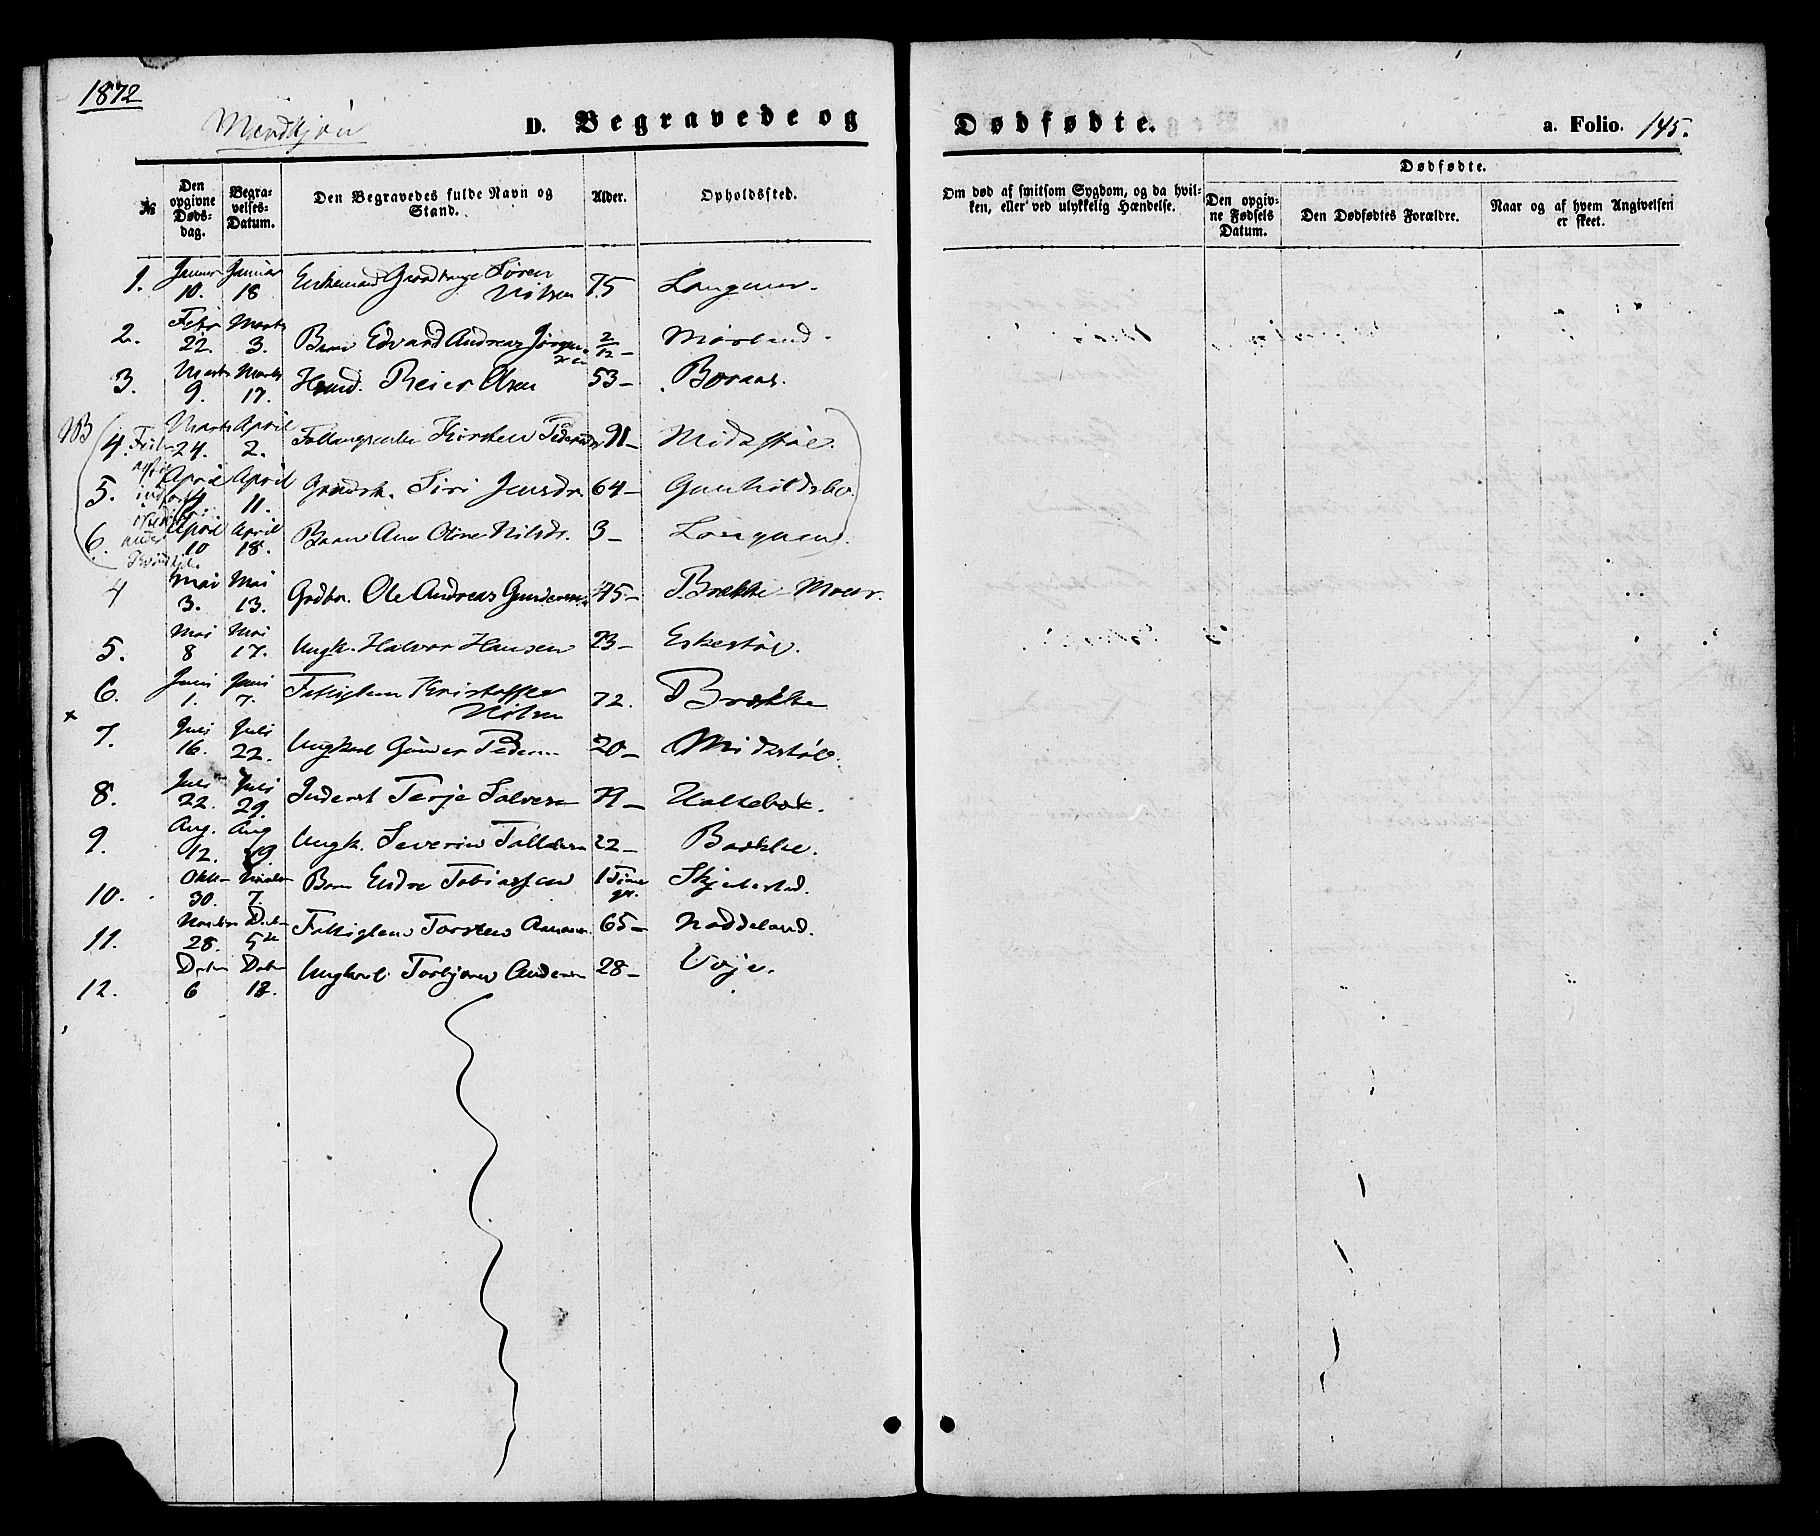 1872
Mandkjøn
D. Begravede og Dødfødte. a. Folio. 145.
№ Den opgivne Døds-dag. Begra-velses-Datum. Den Begravedes fulde Navn og Stand. Alder. Opholdssted. Om død af smitsom Sygdom, og da hvil-ken, eller ved ulykkelig Hændelse. Dødfødte. Den opgiv-ne Fødsels Datum. Den Dødfødtes Forældre. Naar og af hvem Angivelsen er skeet.
1. Januar 10. Januar 18 Enkemand Søren Nilsen 75 Langmer.
2. Febr 22. Marts 3. Barn Edvard Andreas Jørgensen 2/12 - Mørland.
3. Marts 9. Marts 17. Reier Olsen 53 - Boraas.
NB
4. Marts 24. April 2. Kirsten Pedersdr 91 - Midtstøl.
5. April 4 April 11. Siri Jensdr. 64 - Gunhildsbo.
6. April 10 April 18. Barn Ane Oline Nilsdr. 3 -
4 Mai 3. Mai 13. Grdbr. Ole Andreas Gundersen 45 - Brække-Moen.
5. Mai 8 Mai 17. Ungk. Halvor Hansen 23 - Eskestøl.
6. Juni 1. Juni 7. Fattiglem Kristoffer Nilsen 72. Brække
x
7. Juli 16. Juli 22. Ungkarl Gunder Pedersen 20 - Midtstøl.
8. Juli 22. Juli 29. Inderst Terje Salvesen 79 - Haltebæk.
9. Aug. 12. Aug 19. Ungk. Severin Tallaksen 22 - Bakke.
10. Oktbr 30. Novbr 7. Barn Endre Tobiassen 1 Time gl. Skjelestad.
11. Novbr 28. Decbr 5te Fattiglem Torsten Aanonsen 65 - Naddeland.
12. Decbr 6 Decbr 13. Ungkarl Torbjørn Andersen 28 - Voje.